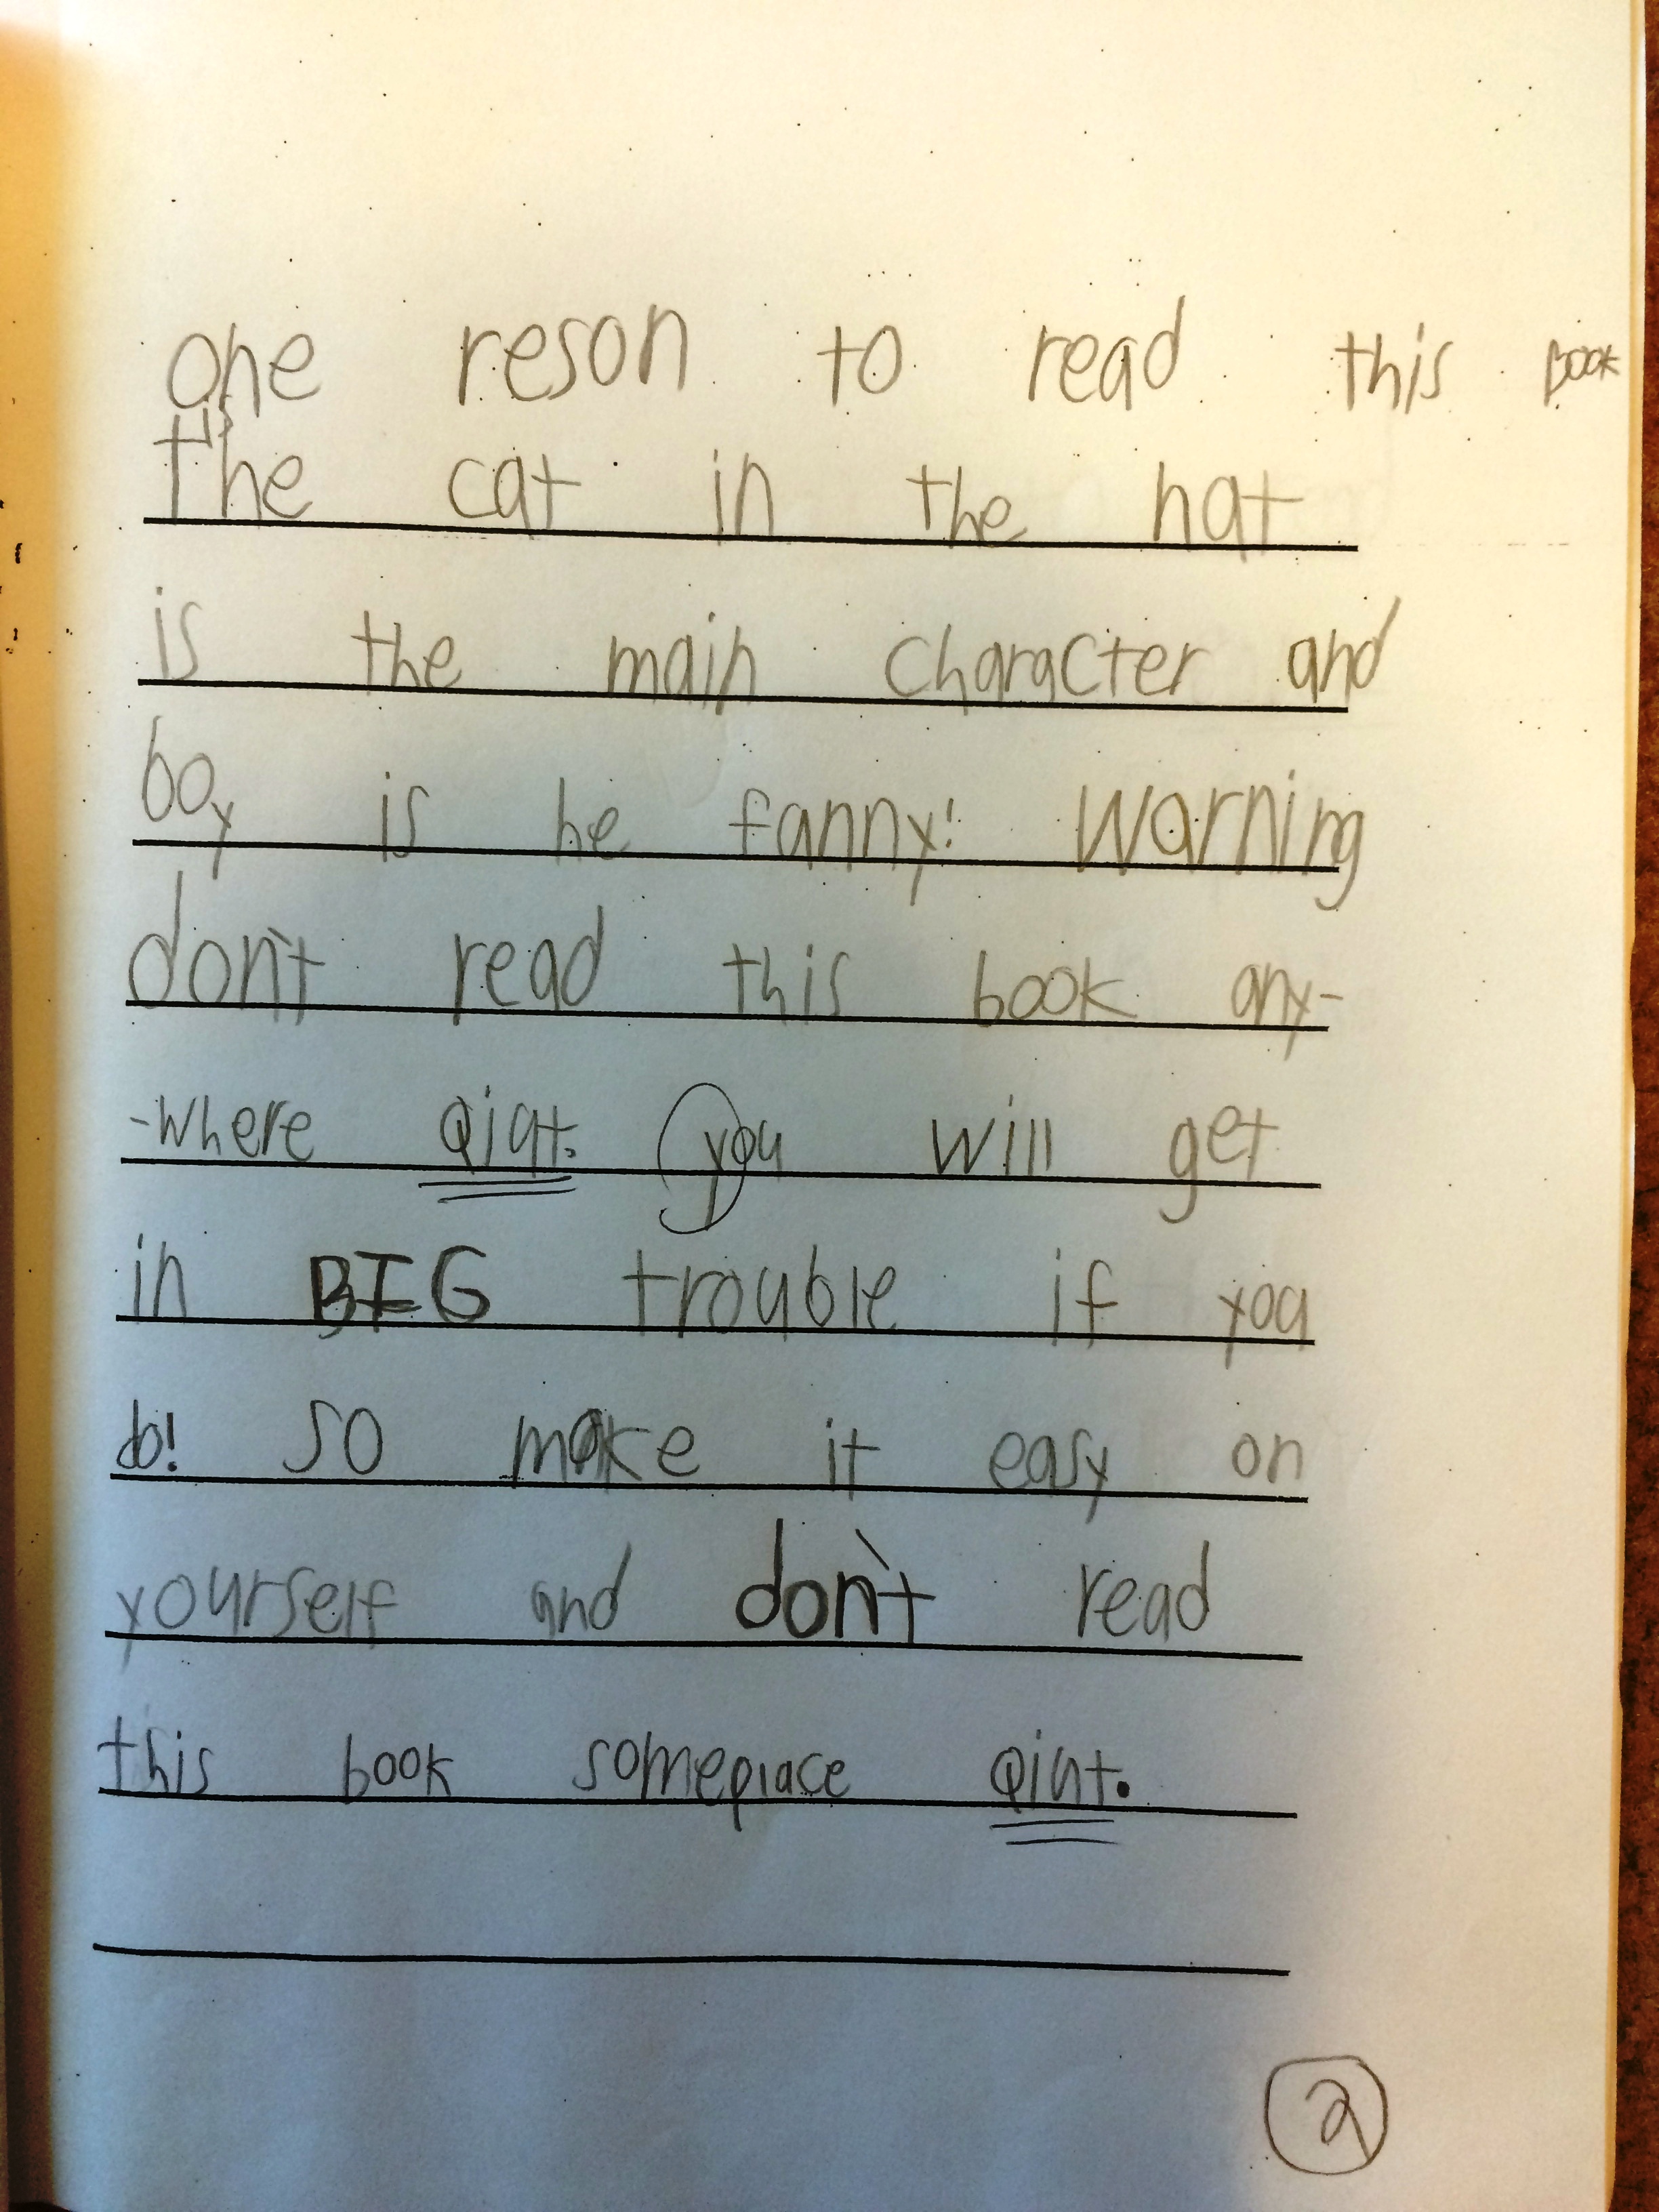 one reson to read this BOOK
is
the cat in the hat
is the main character and
boy is he fanny! Warning
don't read this book any-
-where Qiat. you will get
in BIG trouble if you
do! so make it easy on
yourself and don't read
this book someplace Qiut.
2